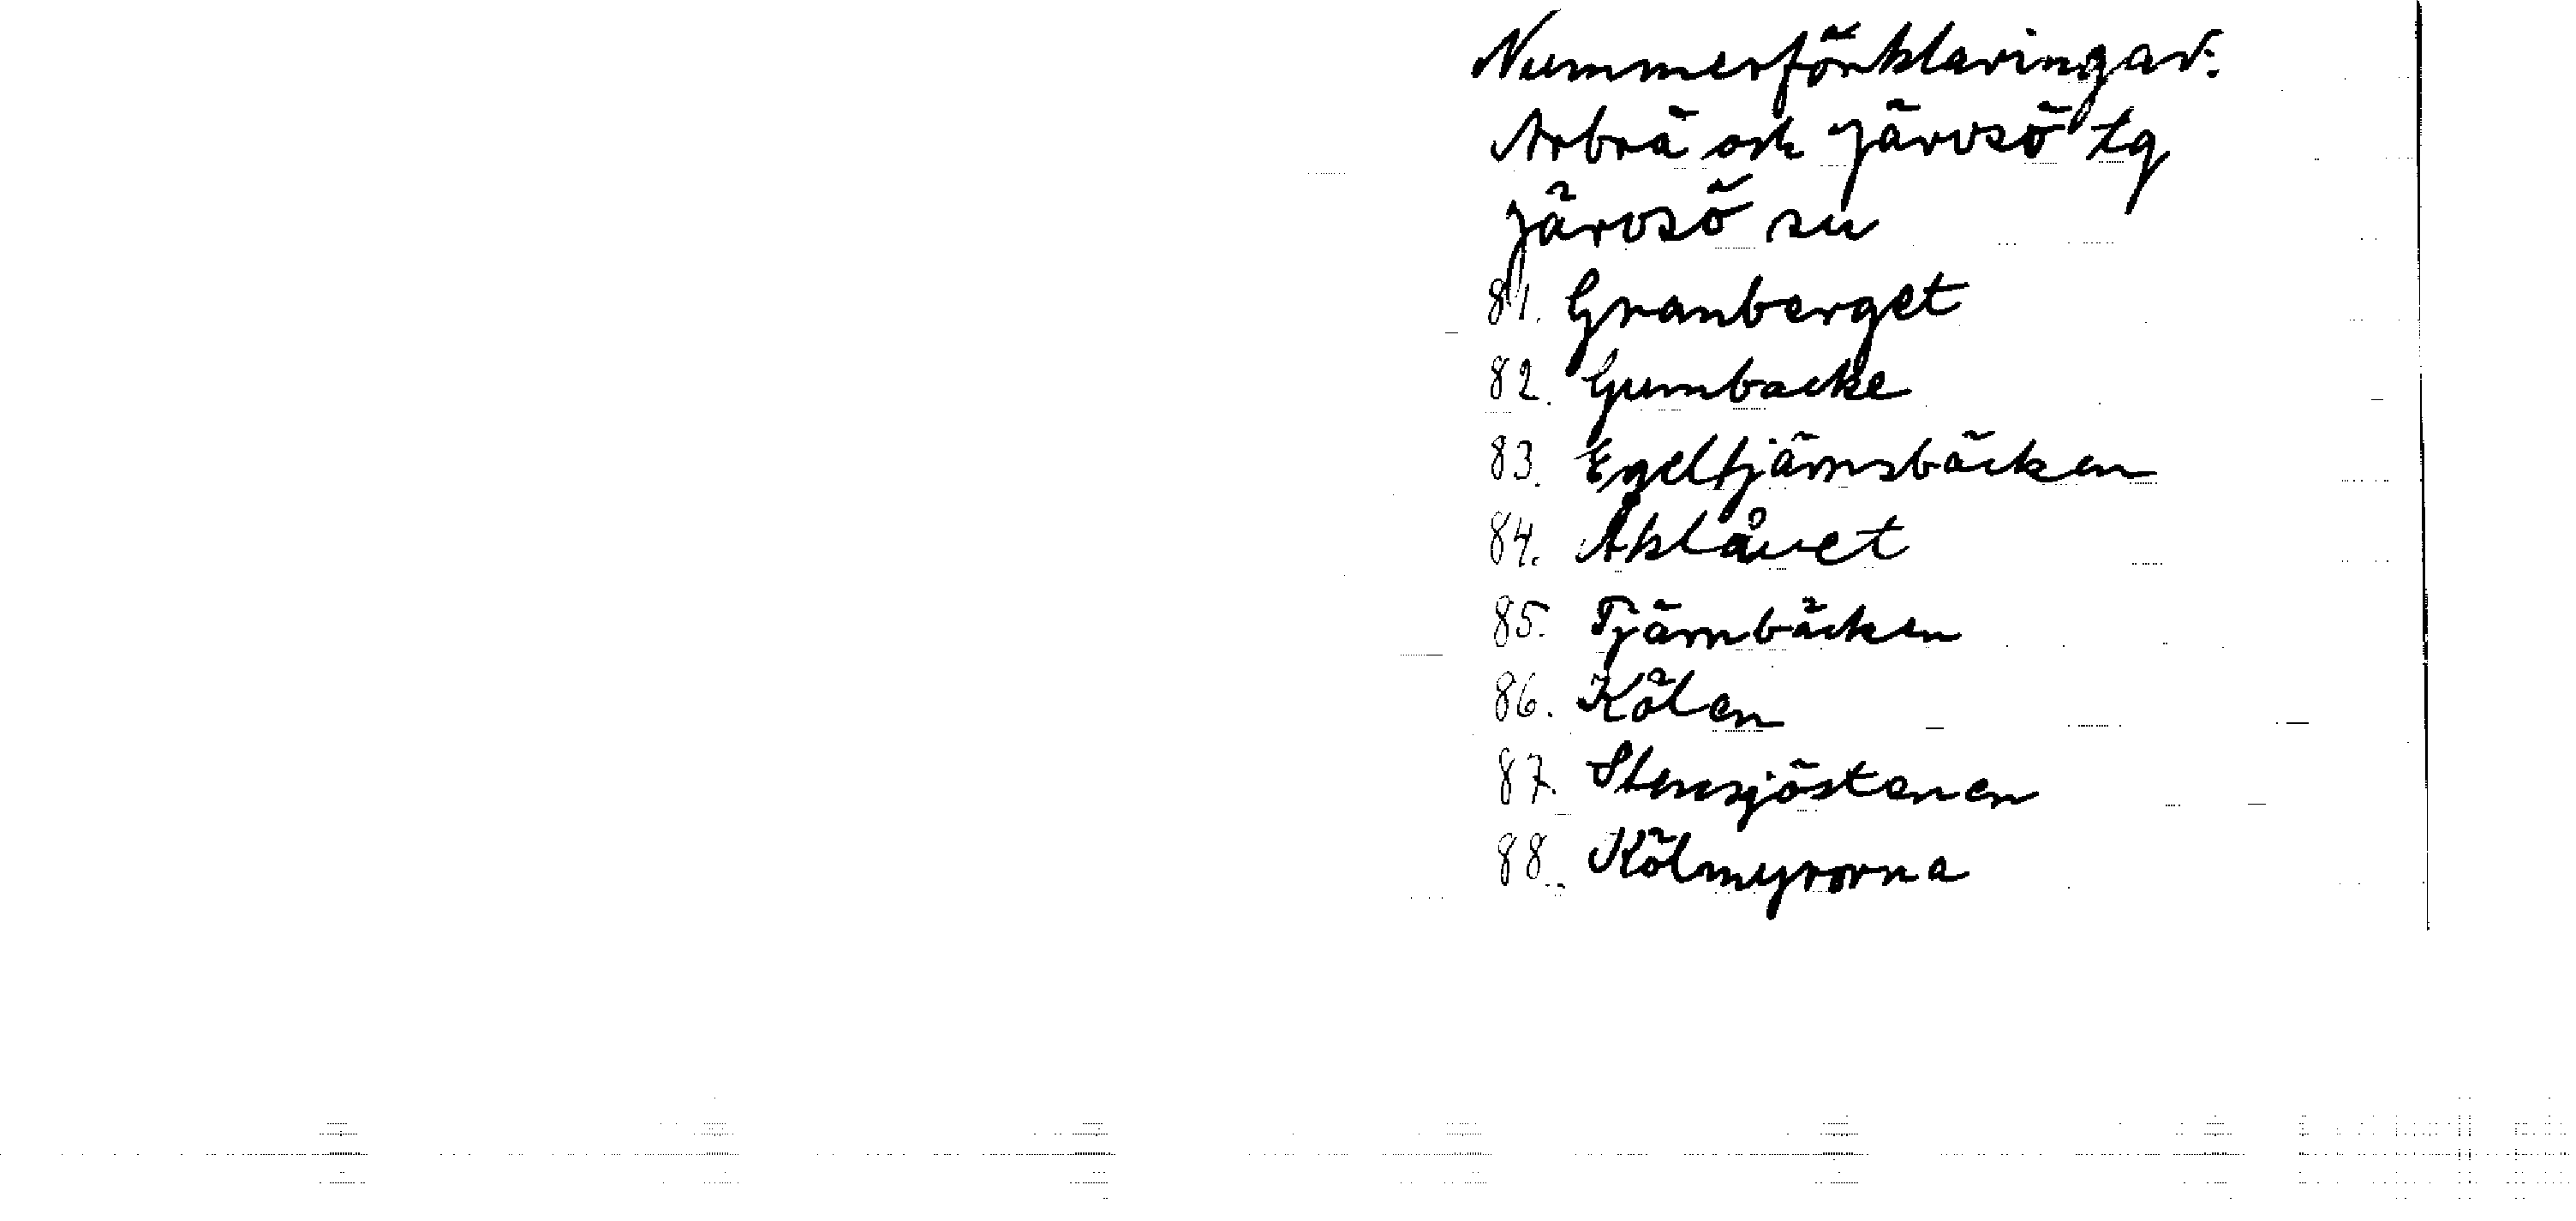 Nummerförklaringar.
Arbrå och Järvsö tg
Järvsö sn
81. Granberget
82. Gumbacke
83. Egeltjärnsbäcken
84. Aklåuet
85. Tjärnbäcken
86. Kölen
87. Stensjöstenen
88. Kölmyrorna